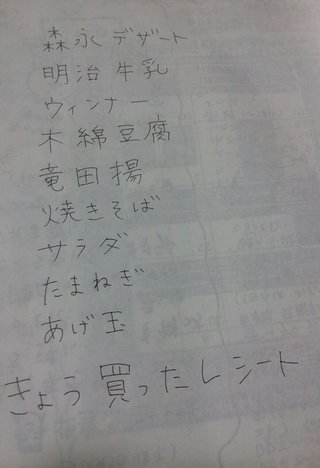 森永 デザート
明治 牛乳
ウィンナー
木綿豆腐
竜田揚
焼きそば
サラダ
たまねぎ
あげ玉
きょう買ったレシート